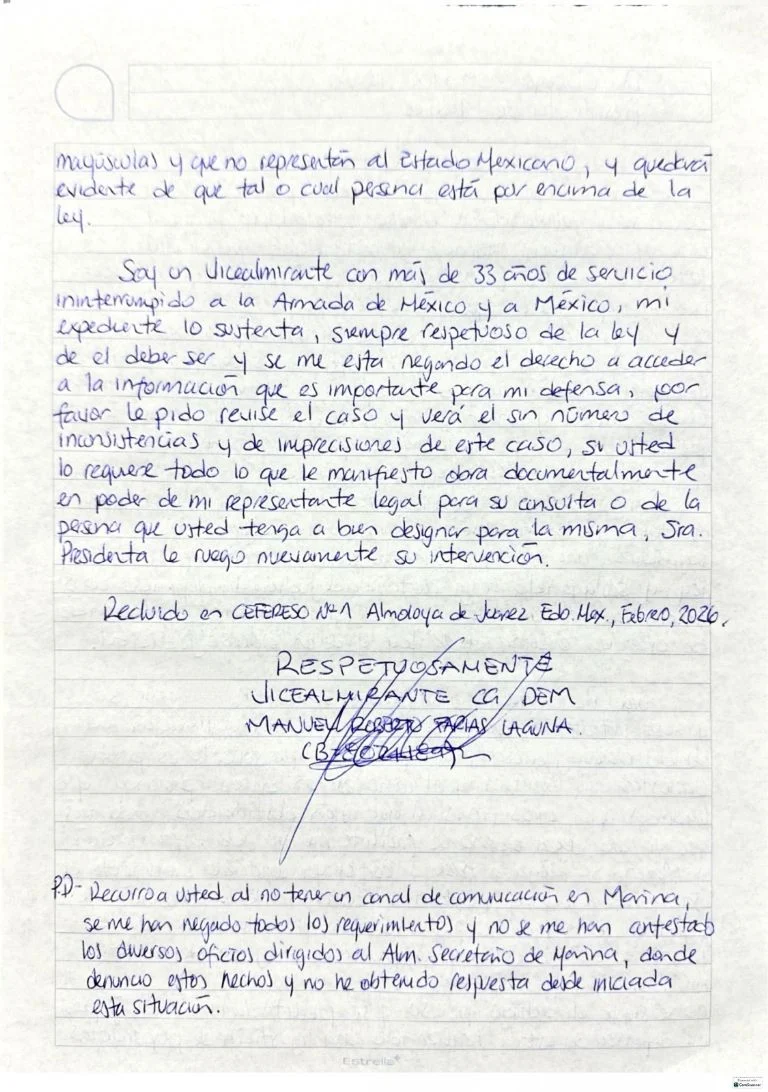 mayúsculas y que no representan al Estado Mexicano, y quedará
evidente de que tal o cual persona está por encima de la
ley.
Soy un Vicealmirante con más de 33 años de servicio
ininterrumpido a la Armada de México y a México, mi
expediente lo sustenta, siempre respetuoso de la ley y
de el deber ser y se me esta negando el derecho a acceder
a la información que es importante para mi defensa, por
favor le pido revise el caso y verá el sin número de
inconsistencias y de imprecisiones de este caso, si usted
lo requiere todo lo que le manifiesto obra documentalmente
en poder de mi representante legal para su consulta o de la
persona que usted tenga a bien designar para la misma, Sra.
Presidenta le ruego nuevamente su intervención.
Recluido en CEFERESO Nº1 Almoloya de Juárez Edo. Mex., Febrero, 2026.
RESPETUOSAMENTE
VICEALMIRANTE CG DEM
MANUEL ROBERTO FARIAS LAGUNA.
P.D- Recurro a usted al no tener un canal de comunicación en Marina,
se me han negado todos los requerimientos y no se me han contestado
los diversos oficios dirigidos al Alm. Secretario de Marina, donde
denuncio estos hechos y no he obtenido respuesta desde iniciada
esta situación.
Estrella